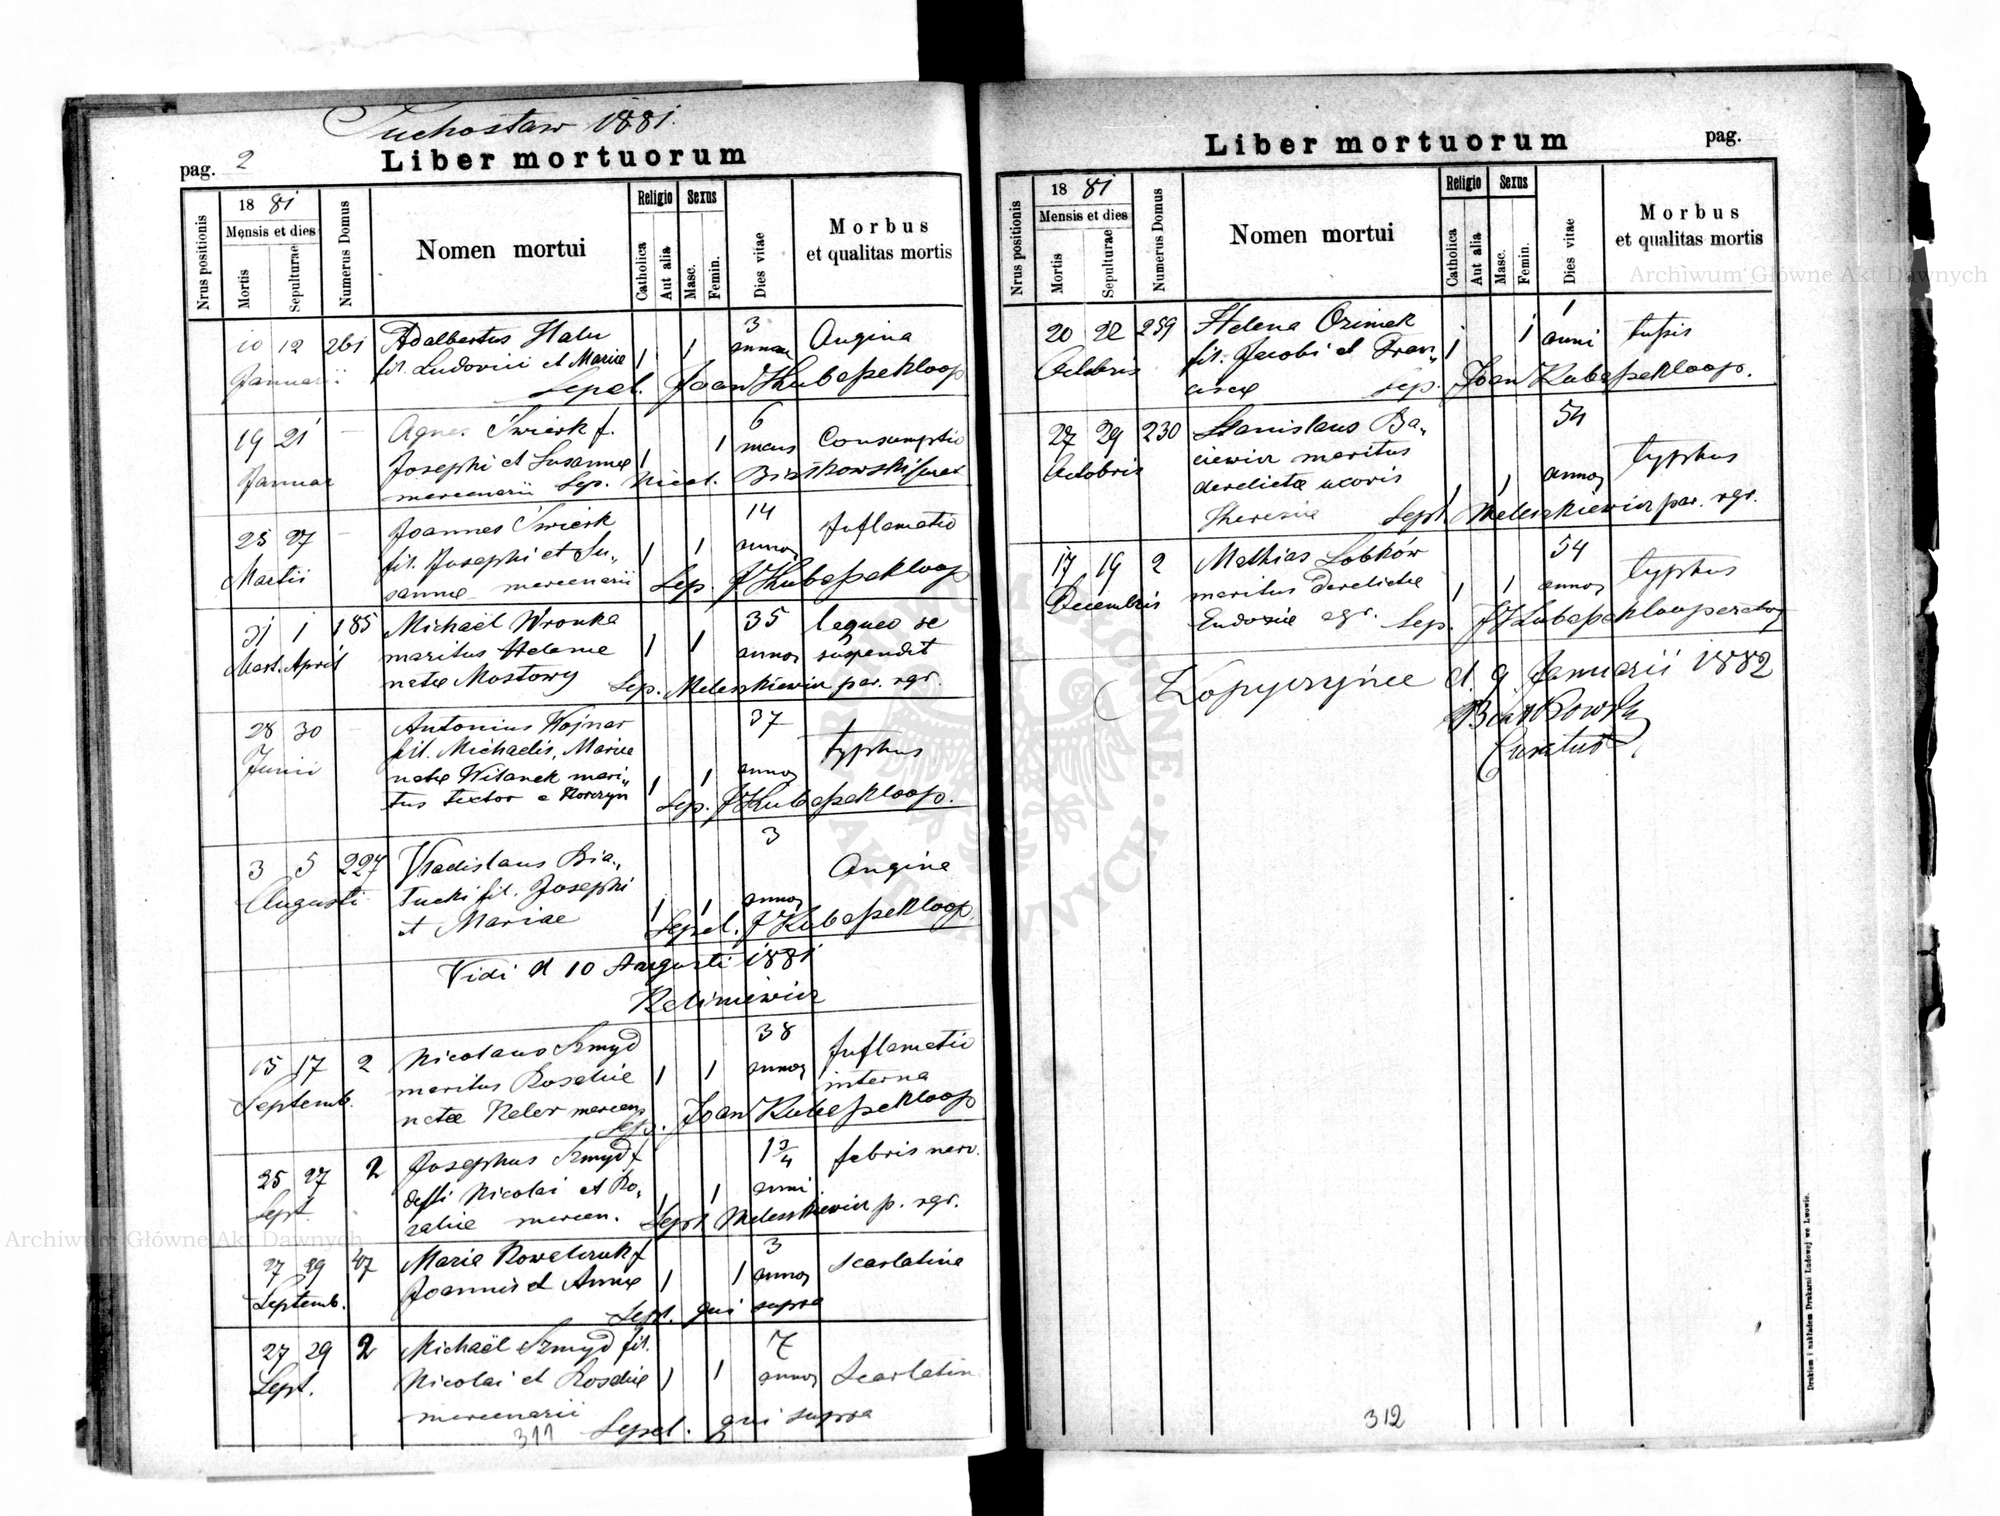 Tuchostaw 1881.
pag. 2
Liber mortuorum
Nrus positionis
18 81
Mensis et dies
Mortis
Sepulturae
Numerus Domus
Nomen mortui
Religio
Catholica
Aut alia
Sexus
Masc.
Femin.
Dies vitae
Morbus
et qualitas mortis
10 12 261 Adalbertus Halu 3 Angina
Januarii fil. Ludovici et Mariae 1 1
Sepel. Joan Kubassek loop
19 21 Agnes Świerk f. 6 Consumptio
Januar Josephi et Susannae 1 1 mens
mercenarii Sep. Nicol. Curat
25 27 Joannes Świerk 14 Inflamatio
Martii fil. Josephi et Su- 1 1 annor
sannae mercenarii Sep. J Kubassek loop
31 1 185 Michaël Wronka 35 laqueo se
Mart. April maritus Helenae 1 1 annor suspendit
natae Mostowy Sep. Meleszkiewicz par. rgr.
28 30 Antonius Wojnar 37
Junii fil. Michaelis, Mariae typhus
natae Witanek mari- 1 1 annor
tus textor e Korczyn Sep. J Kubassek loop.
3 5 227 Vladislaus Bia- 3 Angina
Augusti tucki fil. Josephi 1 1 annor
et Mariae Sepel. J Kubassek loop
Vidi d 10 Augusti 1881
15 17 2 Nicolaus Szmyd 38 Inflamatio
Septemb. maritus Rosaliae 1 1 annor interna
natae Keler mercen. Sep. Joan Kubassek loop
25 27 2 Josephus Szmyd f 1 3/4 febris nerv.
Sept defti Nicolai et Ro- 1 1 anni
saliae mercen. Sept Meleszkiewicz p. rgr.
27 29 47 Maria Kowalczuk f 3 Scarlatina
Septemb. Joannis et Annae 1 1 annor
Sepl. qui supra
27 29 2 Michaël Szmyd fil. 7
Sept. Nicolai et Rosaliae 1 1 annor Scarlatin
mercenarii Sepel. qui supra
311
Liber mortuorum
pag.
Nrus positionis
18 81
Mensis et dies
Mortis
Sepulturae
Numerus Domus
Nomen mortui
Religio
Catholica
Aut alia
Sexus
Masc.
Femin.
Dies vitae
Morbus
et qualitas mortis
20 22 259 Helena Ozimek 1 1 1 anni tussis
Octobris fil. Jacobi et Fran-
ciscae Sep. Joan Kubassek loop.
27 29 230 Stanislaus Ba- 54
Octobris ciewicz maritus typhus
derelictae uxoris 1 1 annor
Theresiae Sept. Meleszkiewicz par. rgr.
17 19 2 Mathias Lobków 54 typhus
Decembris maritus derelictae 1 1 annor
Eudoxiae agr. Sep. J Kubassek looperator
Kopyczyńce d. 9 Januarii 1882
Curatus
312
Drukiem i nakładem Drukarni Ludowej we Lwowie.
Archiwum Główne Akt Dawnych
Archiwum Główne Akt Dawnych
ARCHIWUM GŁÓWNE AKT DAWNYCH